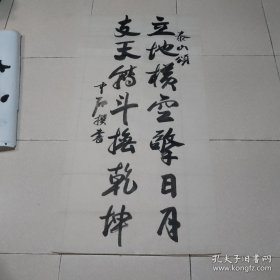 泰山颂
立地横空擎日月
支天转斗揽乾坤
中石撰书
孔夫子旧书网